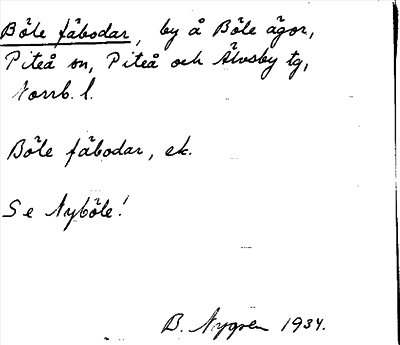 Böle fäbodar, by å Böle ägor,
Piteå sn, Piteå och Älvsby tg,
Norrb. l.
Böle fäbodar, ek.
Se Nyböle!
B. Nygren 1934.